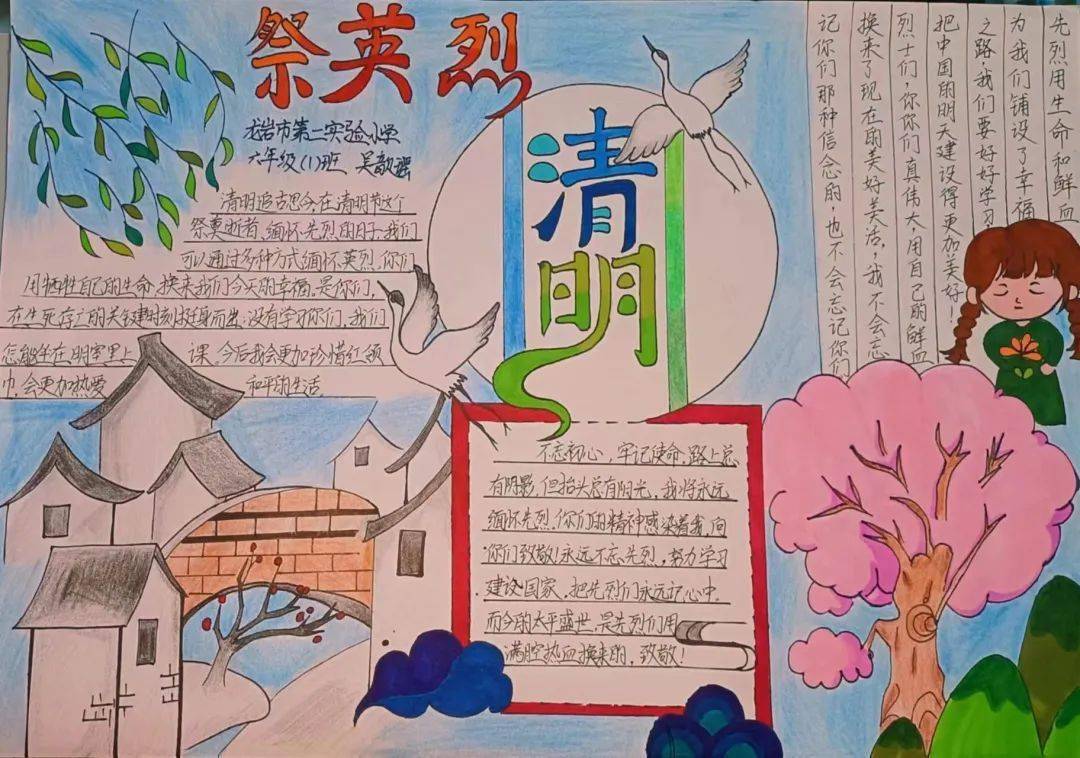 祭英烈
龙岩市第二实验小学
六年级(1)班 吴歆瑶
清明
清明追古思今在清明节这个
祭奠逝者、缅怀先烈的日子,我们
可以通过多种方式缅怀英烈,你们
用牺牲自己的生命,换来我们今天的幸福。是你们,
在生死存亡的关键时刻挺身而出,没有学习你们,我们
怎能坐在明窗里上课,今后我会更加珍惜红领
巾,会更加热爱和平的生活。
先烈用生命和鲜血
为我们铺设了幸福
之路,我们要好好学习
把中国的明天建设得更加美好!
烈士们,你你们真伟大,用自己的鲜血
换来了现在的美好美活,我不会忘
记你们那种信念的,也不会忘记你们
不忘初心,牢记使命,路上总
有阴影,但抬头总有阳光,我将永远
缅怀先烈,你们的精神感染着我,向
你们致敬!永远不忘先烈,努力学习
建设国家,把先烈们永远记心中,
而今的太平盛世,是先烈们用
满腔热血换来的,致敬!